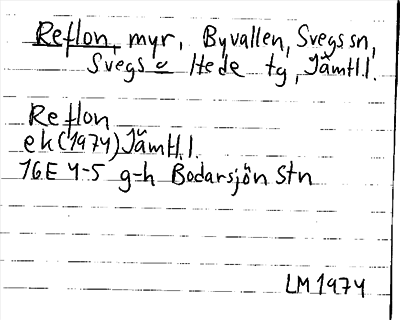 Reflon, myr, Byvallen, Svegs sn,
Svegs o Hede tg, Jämtl.l.
Reflon
ek (1974) Jämtl.l.
16E 4-5 g-h Bodarsjön Stn
LM 1974